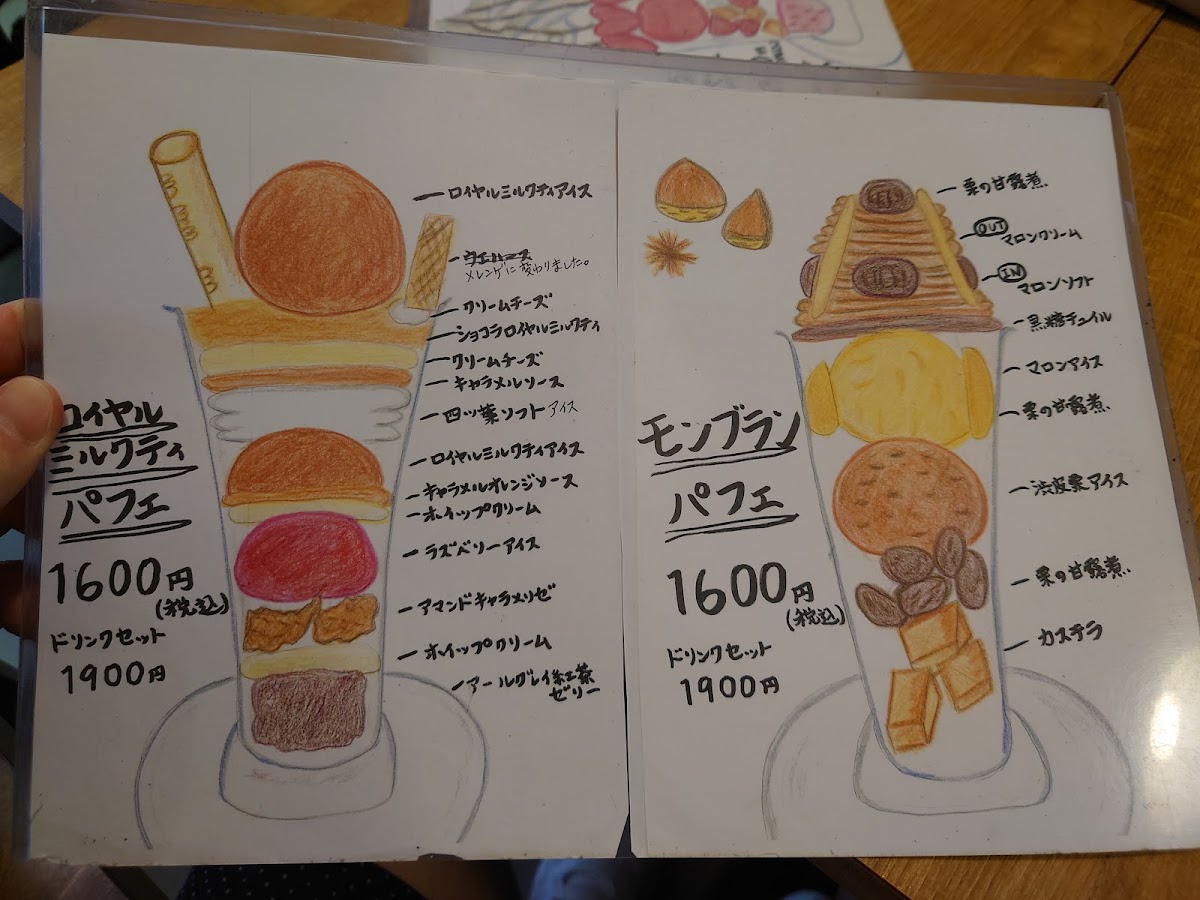 ロイヤル
ミルクティ
パフェ
1600円
(税込)
ドリンクセット
1900円
ロイヤルミルクティアイス
ウエハース
メレンゲに変わりました。
クリームチーズ
ショコラロイヤルミルクティ
クリームチーズ
キャラメルソース
四ッ葉ソフトアイス
ロイヤルミルクティアイス
キャラメルオレンジソース
ホイップクリーム
ラズベリーアイス
アマンドキャラメリゼ
ホイップクリーム
アールグレイ紅茶
ゼリー
モンブラン
パフェ
1600円
(税込)
ドリンクセット
1900円
栗の甘露煮
OUT マロンクリーム
IN マロンソフト
黒糖チュイル
マロンアイス
栗の甘露煮
渋皮栗アイス
栗の甘露煮
カステラ